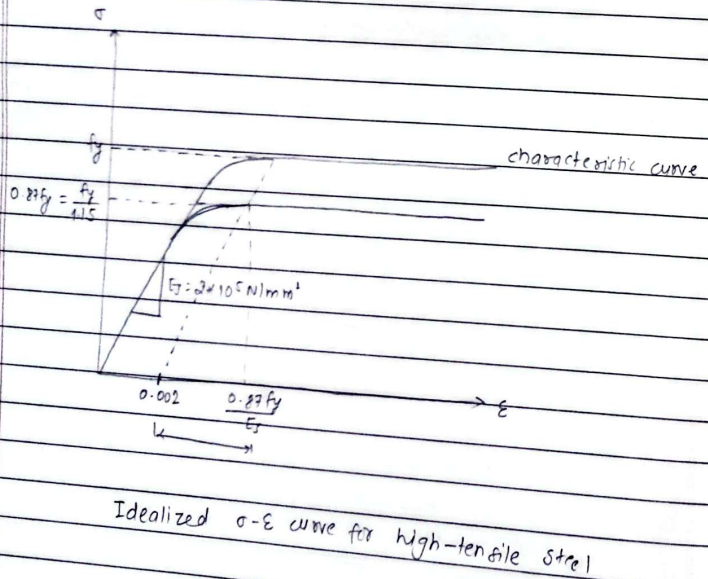 σ
fy
characteristic curve
0.87fy = fy/1.15
Es = 2×10⁵ N/mm²
0.002
0.87fy/Es
ε
Idealized σ-ε curve for high-tensile steel